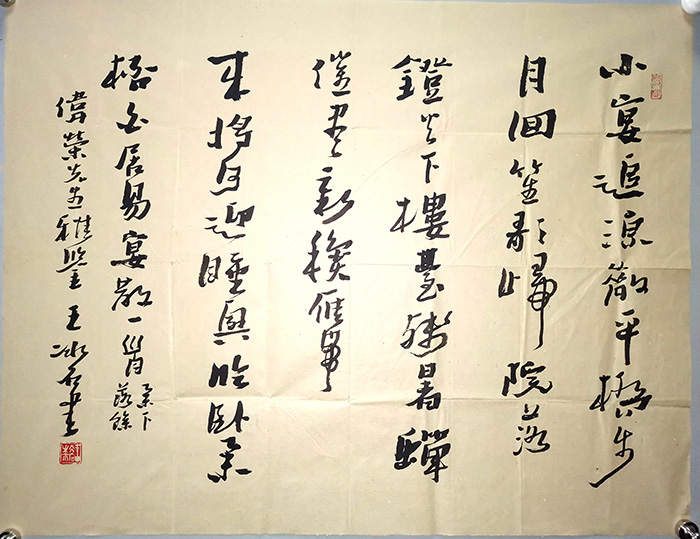 小宴追涼散平橋步
月回笙歌歸院落
鐙火下樓臺殘暑蟬
催尽新穐雁帶
来將何迎睡興吟卧舉
杯白居易宴散一首
舉下
落餘
偉榮先生雅鑒王冰石書